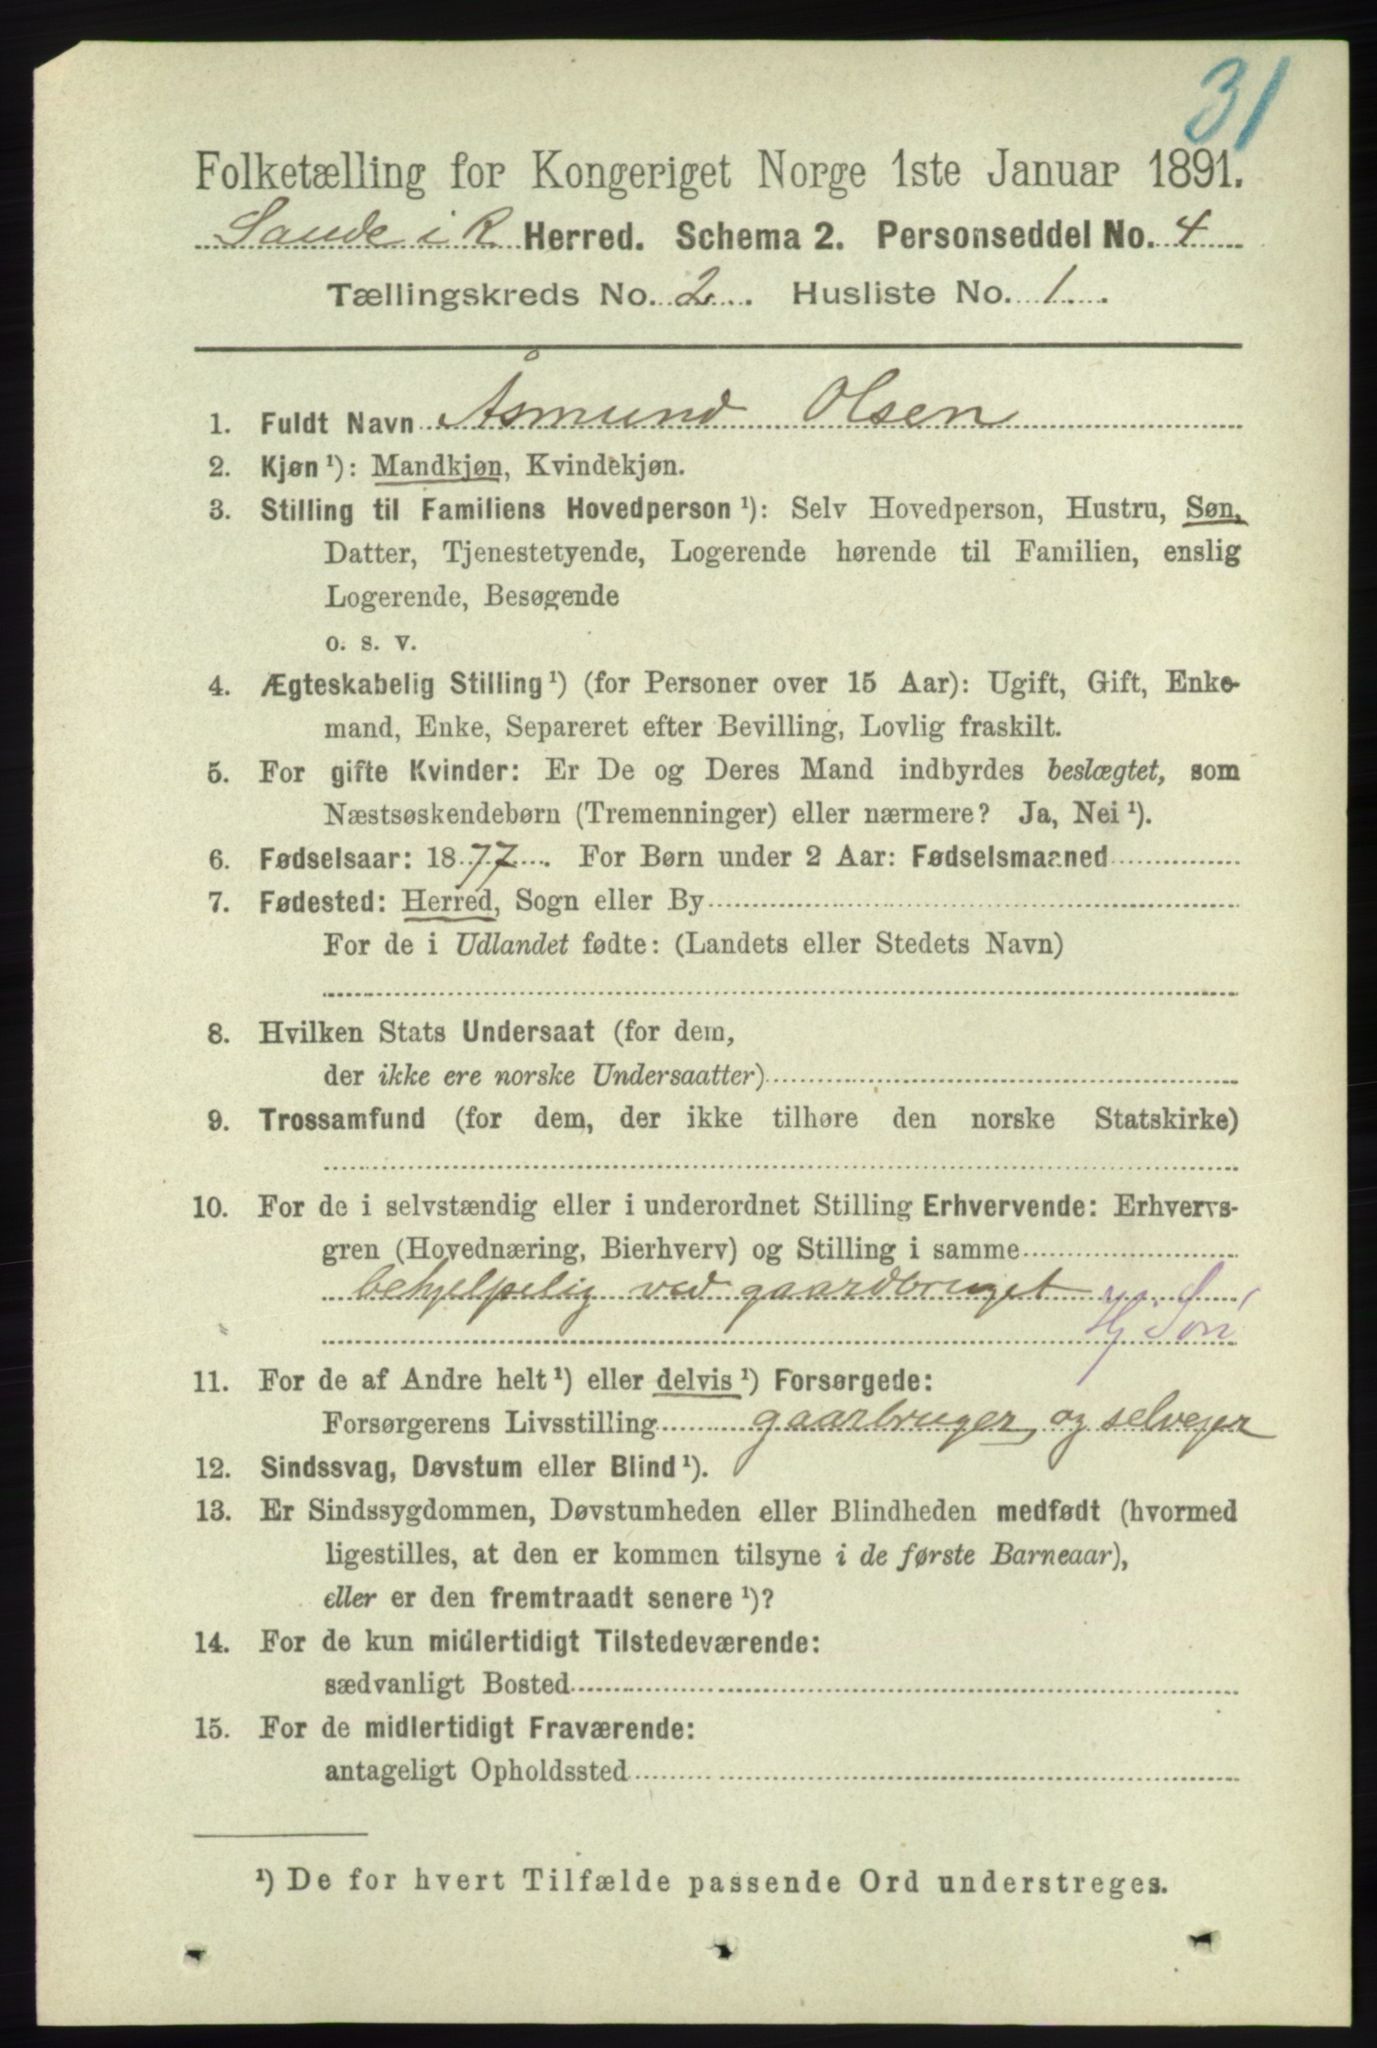 31
Folketælling for Kongeriget Norge 1ste Januar 1891.
Sande i R. Herred. Schema 2. Personseddel No. 4
Tællingskreds No. 2. Husliste No. 1.
1. Fuldt Navn Åsmund Olsen
2. Kjøn ¹): Mandkjøn, Kvindekjøn.
3. Stilling til Familiens Hovedperson ¹): Selv Hovedperson, Hustru, Søn,
Datter, Tjenestetyende, Logerende hørende til Familien, enslig
Logerende, Besøgende
o. s. v.
4. Ægteskabelig Stilling ¹) (for Personer over 15 Aar): Ugift, Gift, Enke-
mand, Enke, Separeret efter Bevilling, Lovlig fraskilt.
5. For gifte Kvinder: Er De og Deres Mand indbyrdes beslægtet, som
Næstsøskendebørn (Tremenninger) eller nærmere? Ja, Nei ¹).
6. Fødselsaar: 1877. For Børn under 2 Aar: Fødselsmaaned
7. Fødested: Herred, Sogn eller By
For de i Udlandet fødte: (Landets eller Stedets Navn)
8. Hvilken Stats Undersaat (for dem,
der ikke ere norske Undersaatter)
9. Trossamfund (for dem, der ikke tilhøre den norske Statskirke)
10. For de i selvstændig eller i underordnet Stilling Erhvervende: Erhvervs-
gren (Hovednæring, Bierhverv) og Stilling i samme
behjelpelig ved gaardbruget
Hj. Søn
11. For de af Andre helt ¹) eller delvis ¹) Forsørgede:
Forsørgerens Livsstilling gaarbruger og selvejer
12. Sindssvag, Døvstum eller Blind ¹).
13. Er Sindssygdommen, Døvstumheden eller Blindheden medfødt (hvormed
ligestilles, at den er kommen tilsyne i de første Barneaar),
eller er den fremtraadt senere ¹)?
14. For de kun midlertidigt Tilstedeværende:
sædvanligt Bosted
15. For de midlertidigt Fraværende:
antageligt Opholdssted
¹) De for hvert Tilfælde passende Ord understreges.